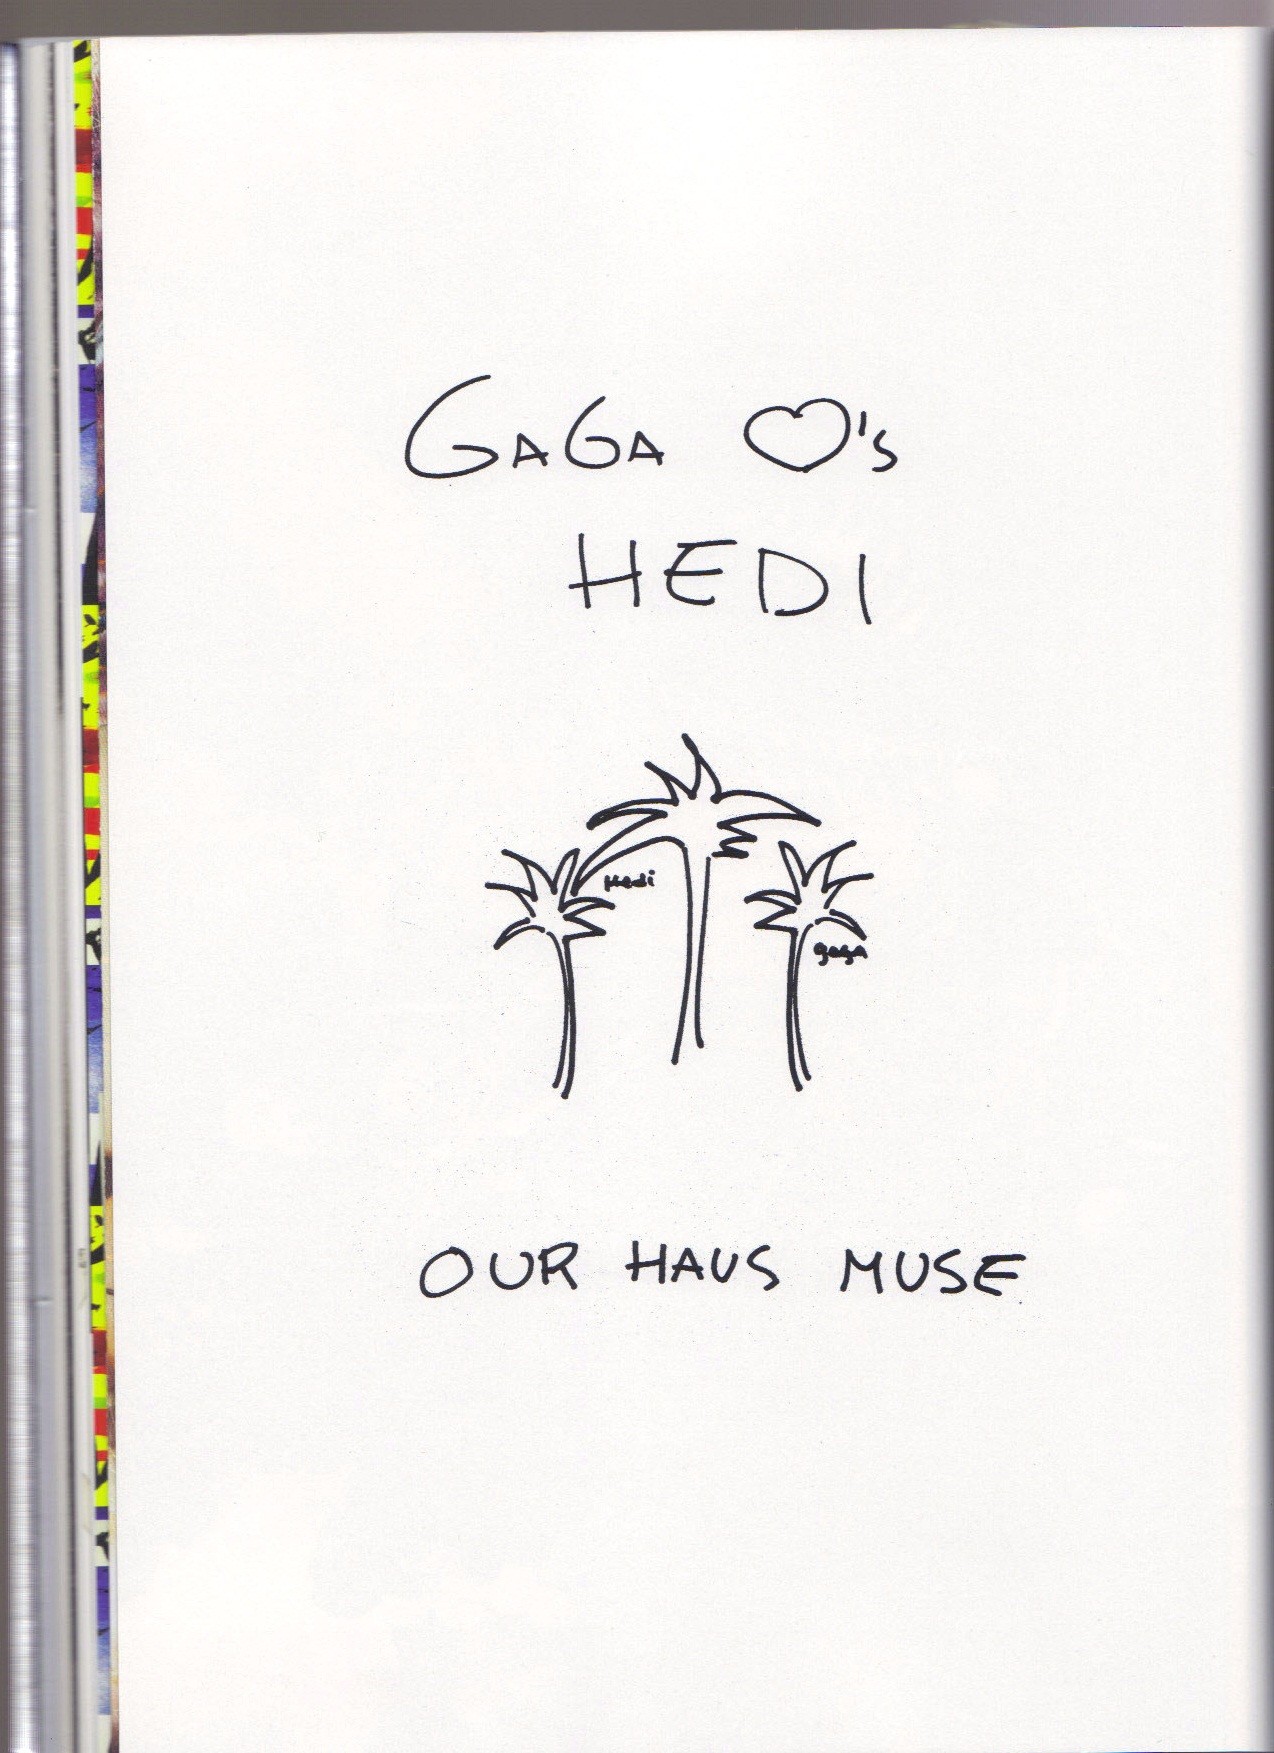 GAGA ♡'s
HEDI
Hedi
gaga
OUR HAUS MUSE